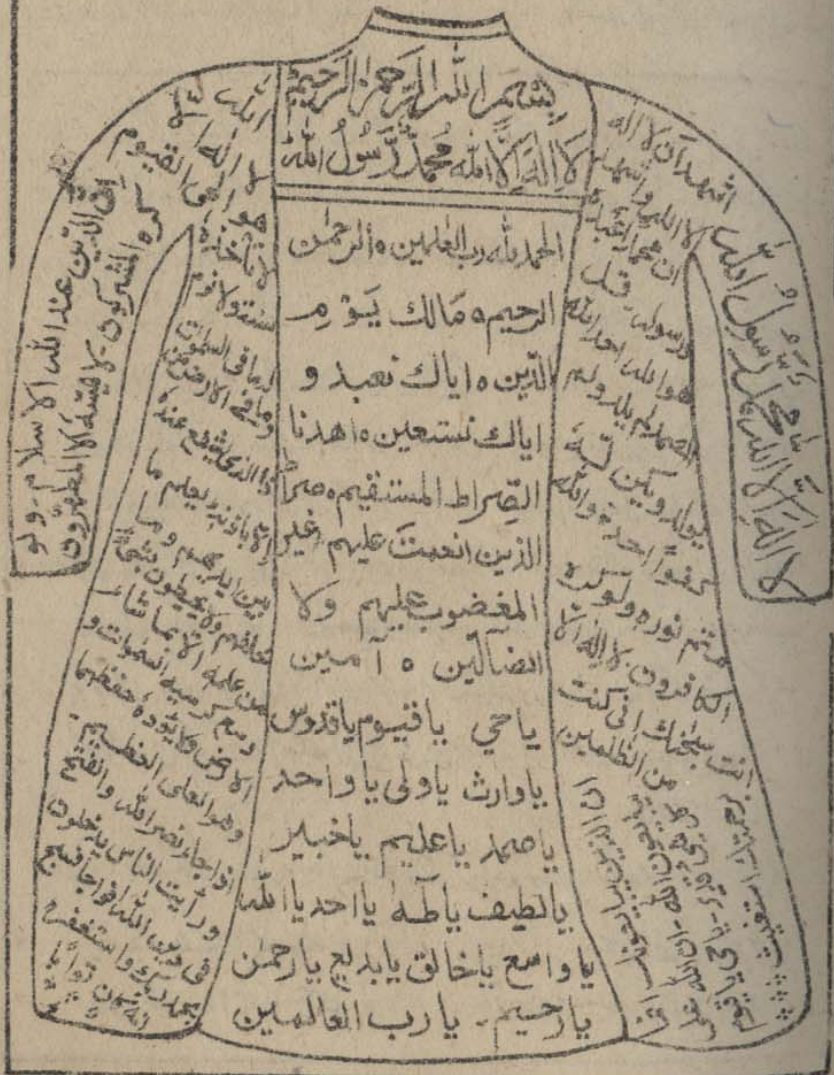 بِسْمِ اللهِ الرَّحْمٰنِ الرَّحِيْمِ
لَا اِلٰهَ اِلَّا اللهُ مُحَمَّدٌ رَّسُوْلُ اللهِ
الحمد لله رب العٰلمين ه الرحمٰن
الرحيم ه مَالك يَوْمِ
الدين ه اياك نعبد و
اياك نستعين ه اهدنا
الصِّراط المستقيم ه صراط
الذين انعمتَ عليهم غير
المغضوب عليهم وَلا
الضآلّين ه آمين
ياحي ياقيوم ياقدوس
ياوارث ياولى ياواحد
ياصمد ياعليم ياخبير
يالطيف ياطٰهٰ يااحد يا الله
يا واسع ياخالق يابديع يارحمٰن
يارحسيم۔ يارب العالمين
اشهد ان لا اله
الا الله واشهد
ان محمدا عبدهٗ
ورسوله۔ قل
هو الله احد الله
الصمد لم يلد ولم
يولد ويكن لهٗ
كفوًا احد ه والله
متم نوره ولو كره
الكافرون۔ لا اِلٰه اِلّا
انت سبحٰنك انى كنت
من الظٰلمين
ان الذين يبايعونك انما
يبايعون الله۔ ان الله على
كل شئ قدير۔ ياحي ياقيوم
برحمتك استغيث
لا اِلٰهَ اِلَّا اللهُ مُحَمَّدٌ رَّسُوْلُ اللهِ
الله لا
اله الا
هو الحى القيوم
لا تاخذه
سنة ولا نوم
له ما فى السمٰوٰت
وما فى الارض من
ذا الذى يشفع عندهٗ
الا باذنه يعلم ما
بين ايديهم وما
خلفهم ولا يحيطون بشئ
من علمه الا بما شاء
وسع كرسيه السمٰوات و
الارض ولا يؤده حفظهما
وهو العلى العظيم۔
اذا جاء نصر الله والفتح
ورأيت الناس يدخلون
فى دين الله افواجا فسبح
بحمد ربك واستغفره
انه كان توابا
اِنّ الدّين عند الله الاسلام۔ ولو
كره المشركون۔ لا يمسّه اِلّا المطهّرون